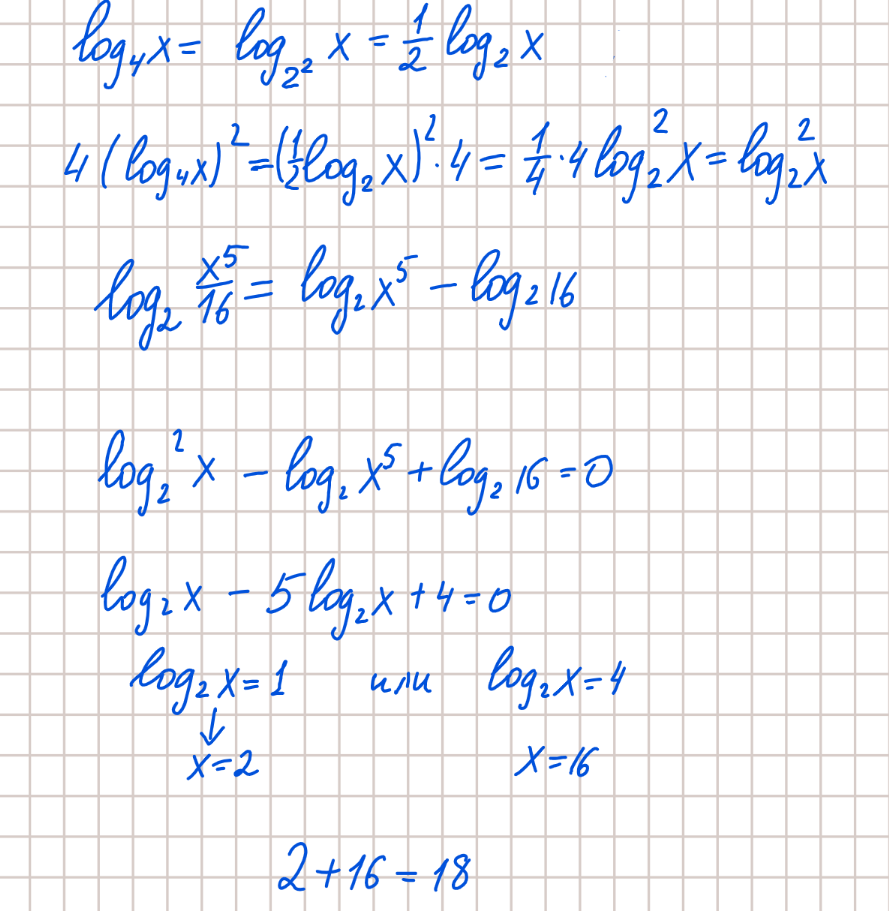 log₄x = log_{2²} x = 1/2 log₂ x
4(log₄x)² = (1/2 log₂ x)² · 4 = 1/4 · 4 log₂² x = log₂² x
log₂ x⁵/16 = log₂ x⁵ − log₂ 16
log₂² x − log₂ x⁵ + log₂ 16 = 0
log₂ x − 5 log₂ x + 4 = 0
log₂ x = 1 или log₂ x = 4
↓
x = 2 x = 16
2 + 16 = 18